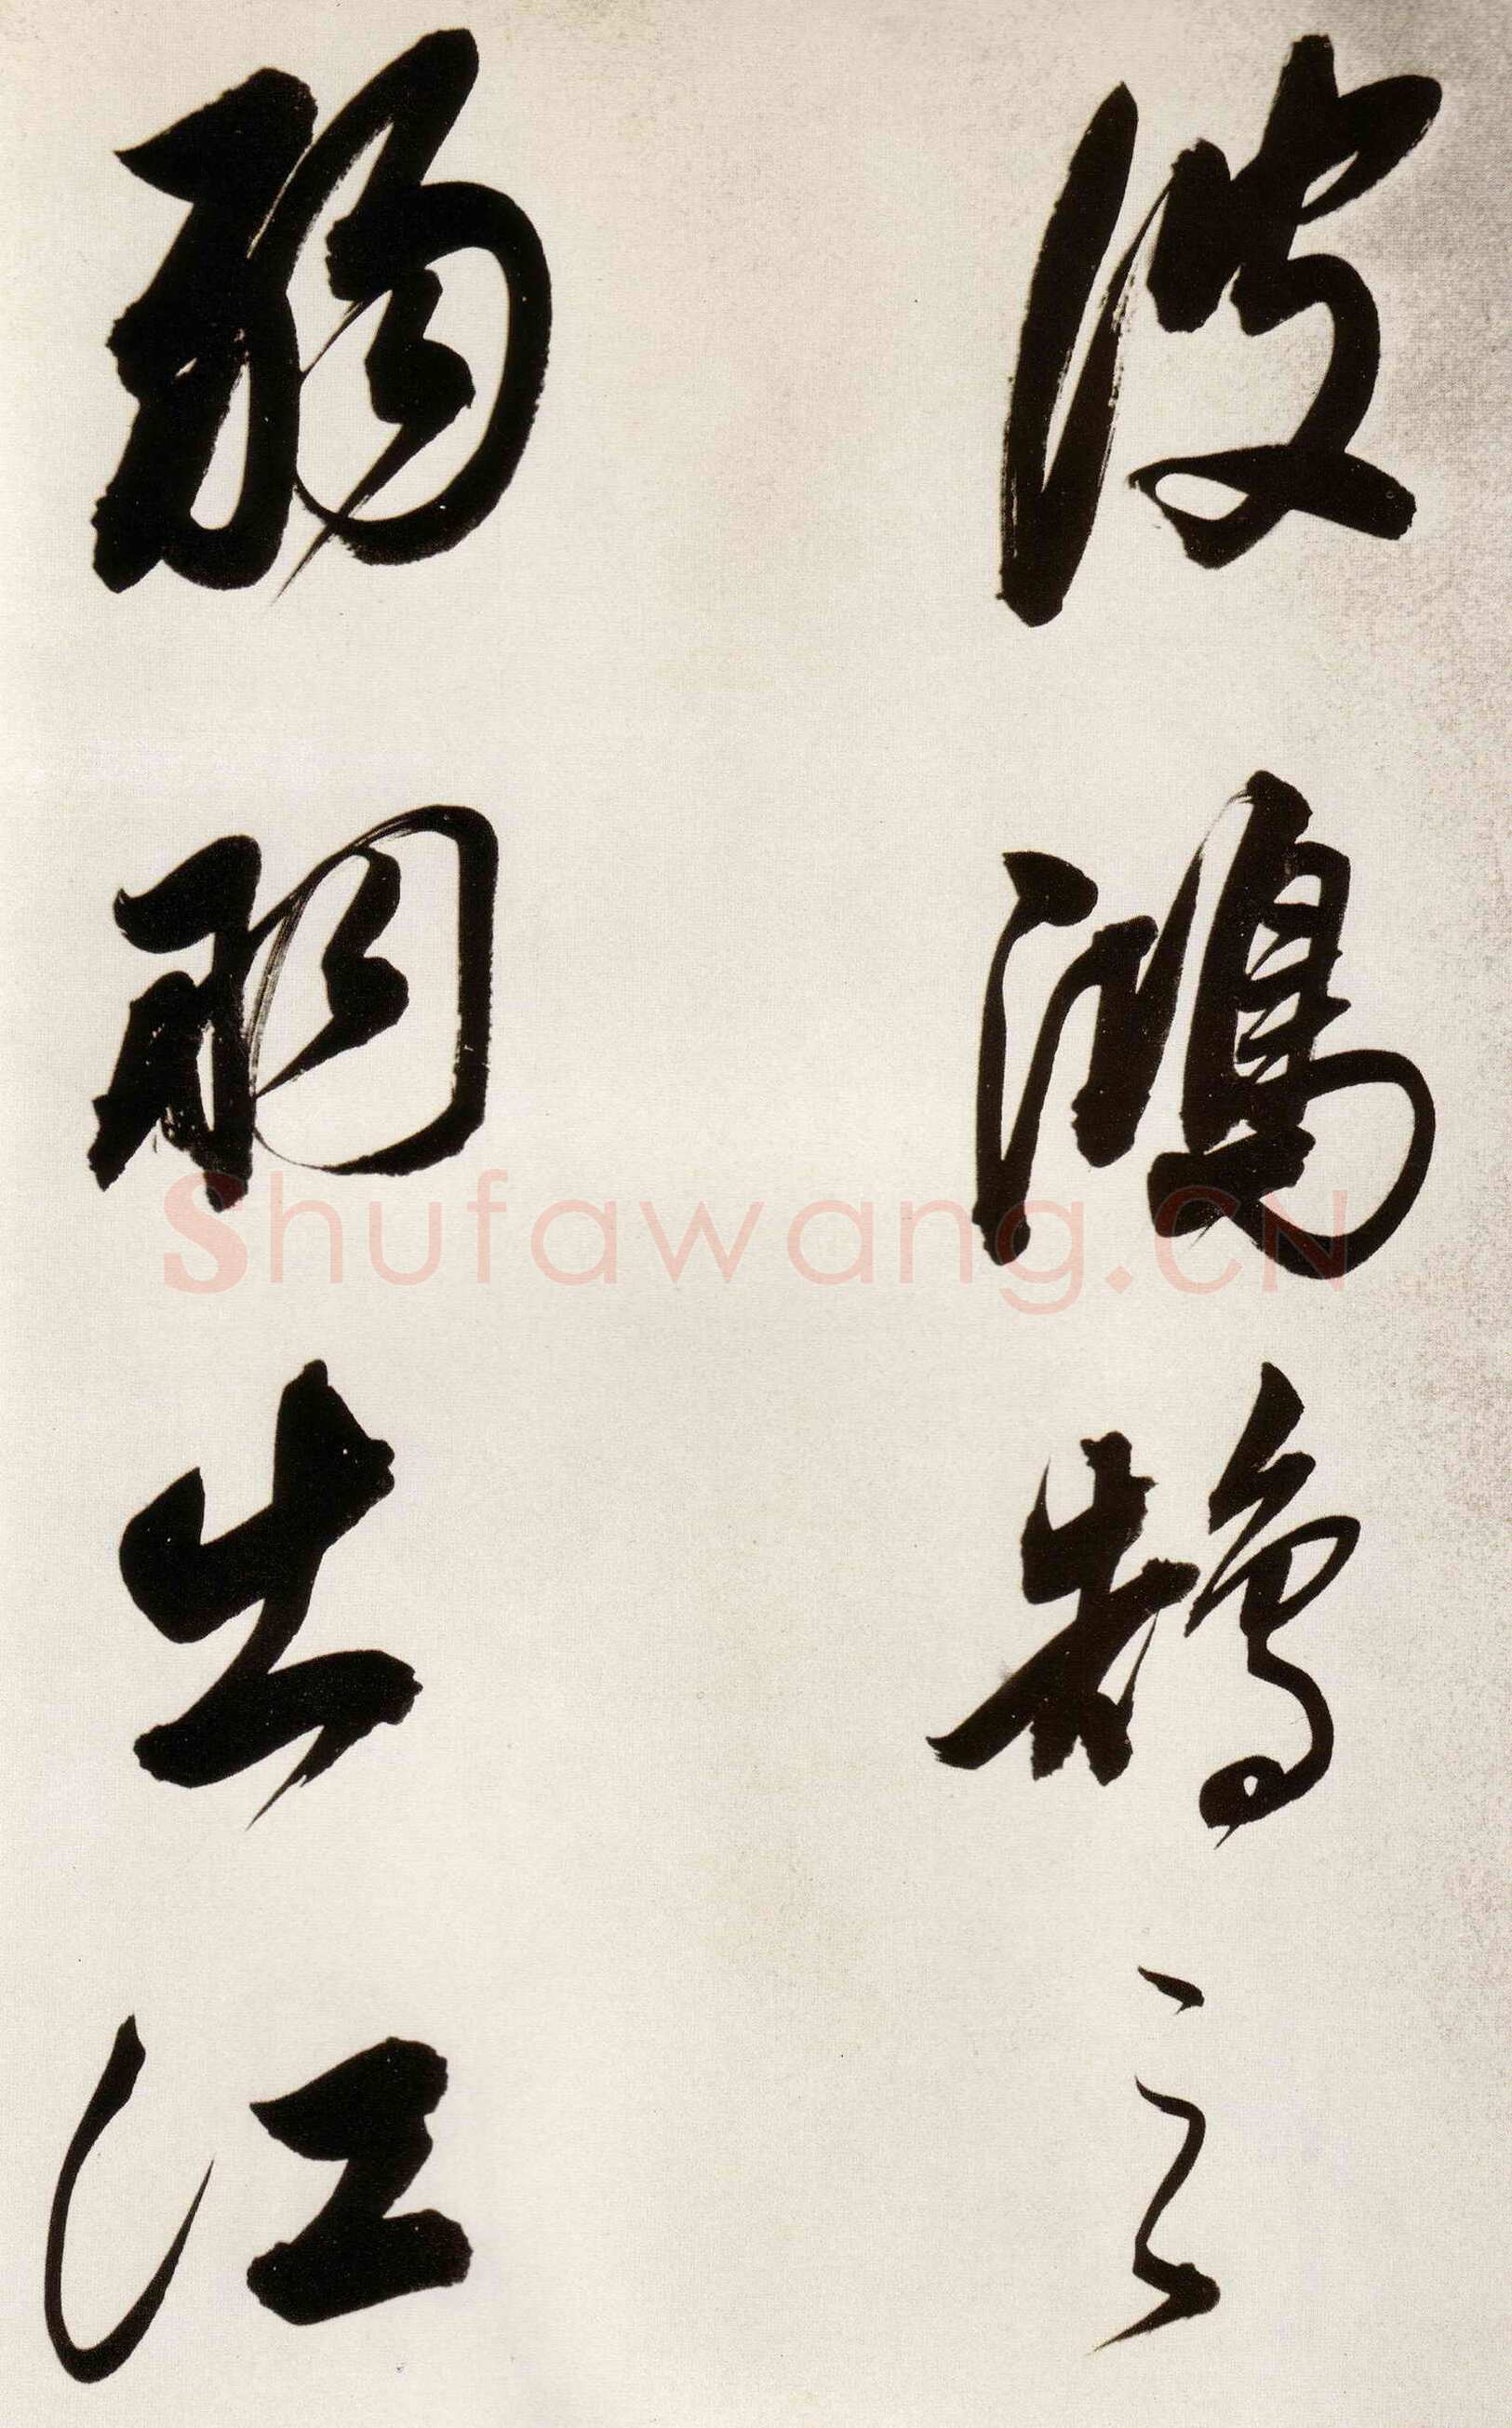 彼鴻鵠之
弱羽出江
Shufawang.CN